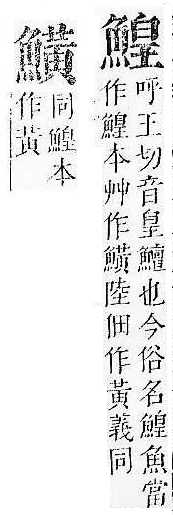 鰉
呼王切音皇鱣也今俗名鰉魚當
作鰉本艸作鱑陸佃作黃義同
鱑
同鰉本
作黃